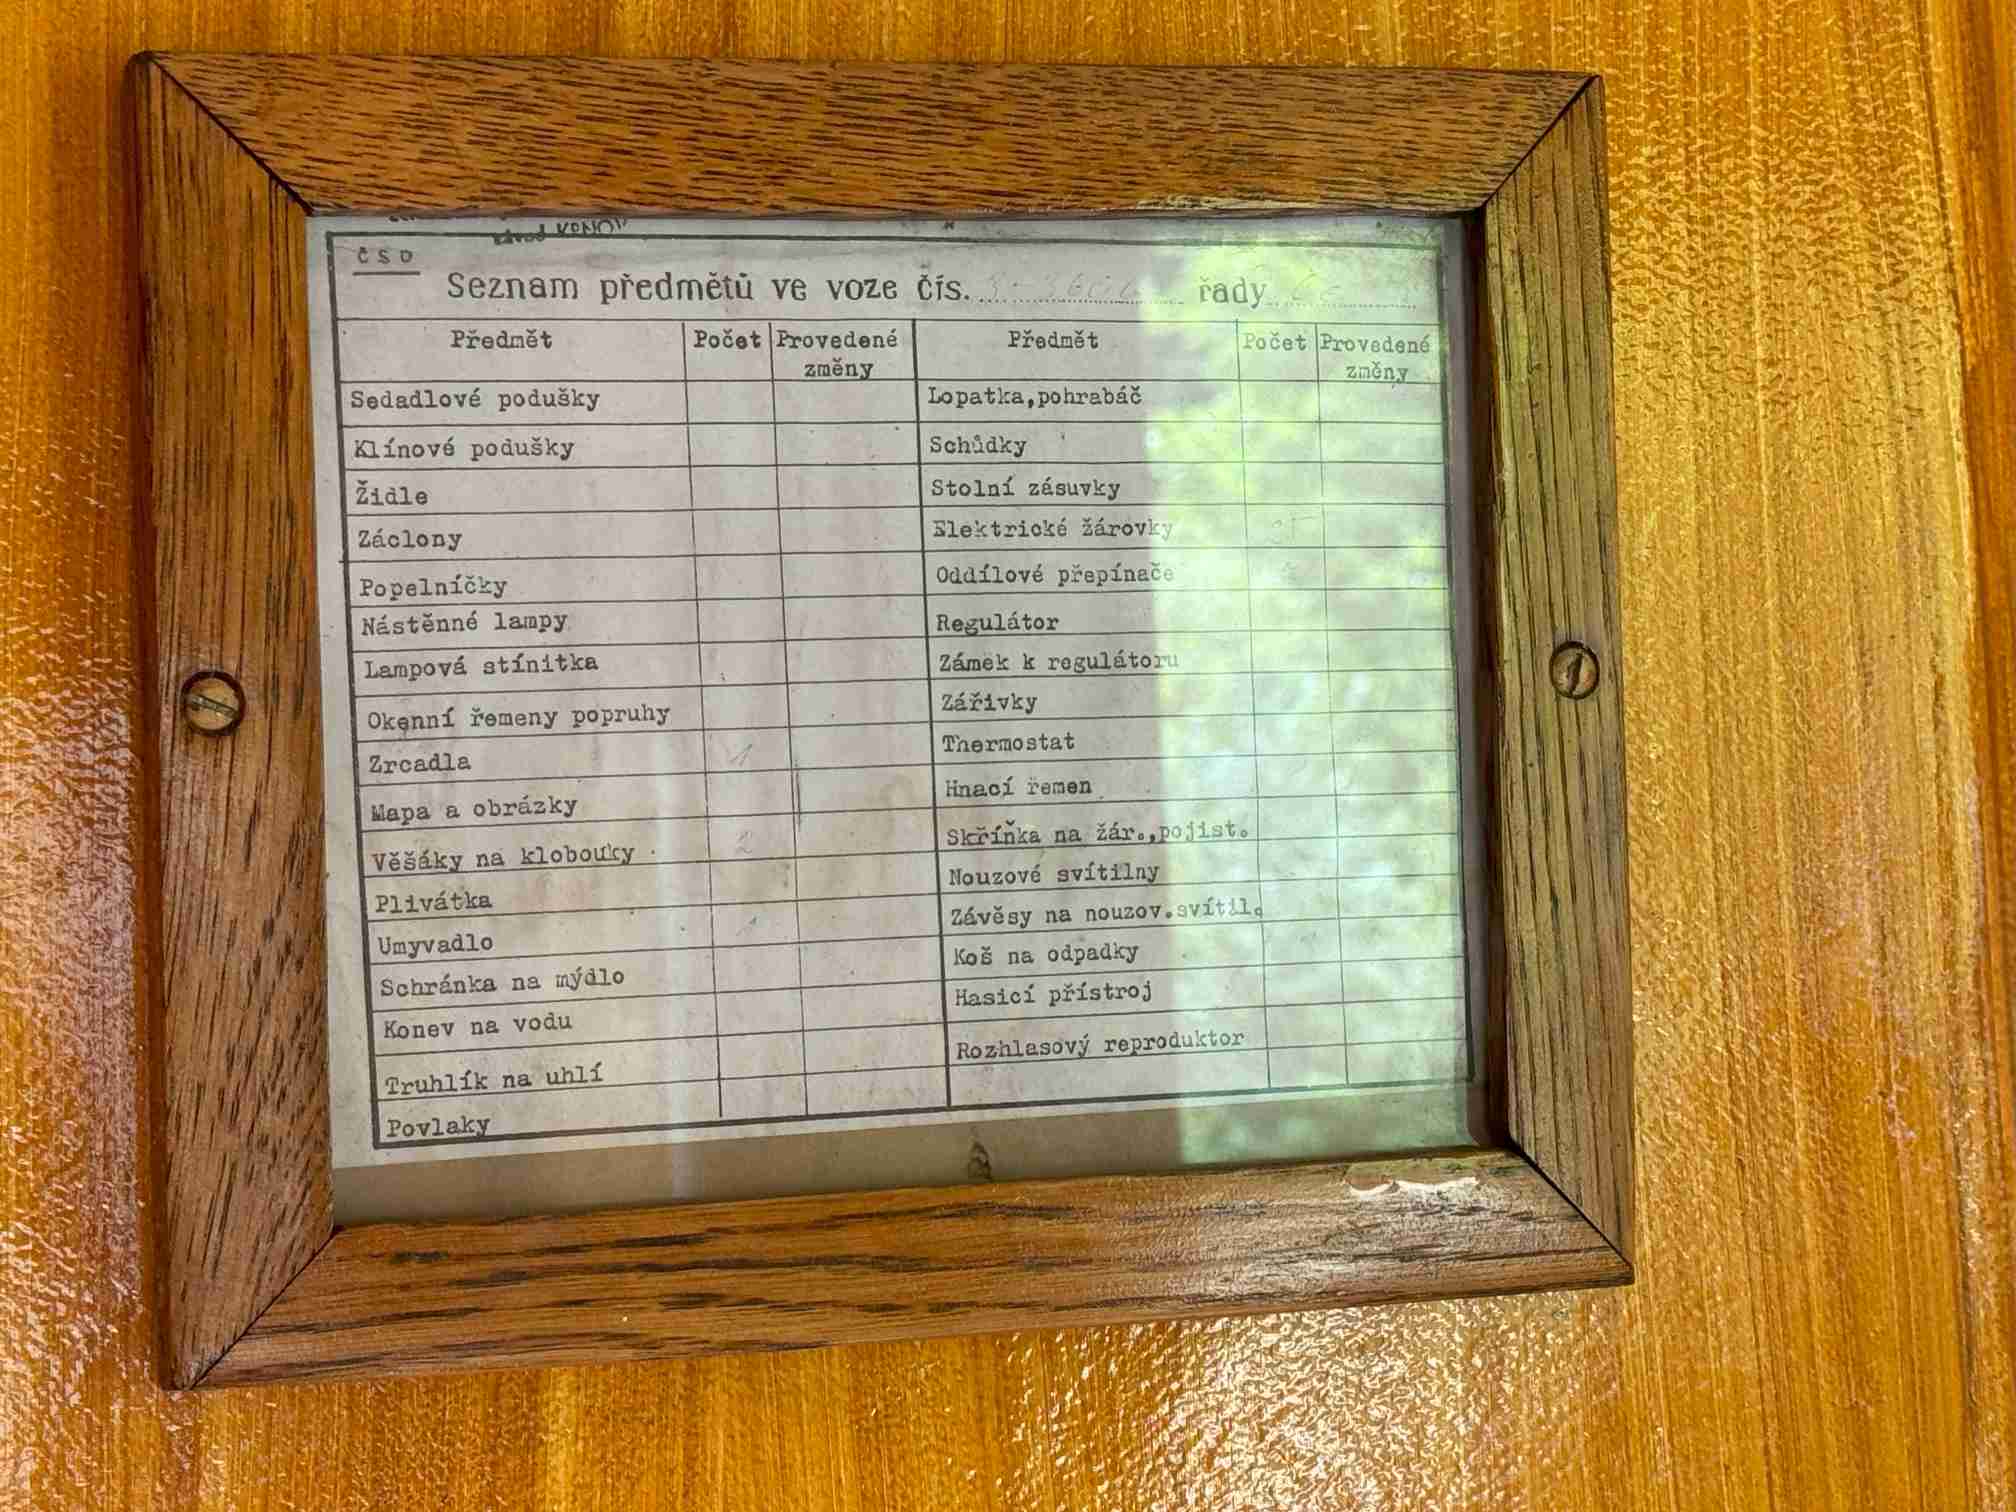 závod KRNOV
ČSD
Seznam předmětů ve voze čís. řady
Předmět Počet Provedené změny Předmět Počet Provedené změny
Sedadlové podušky
Klínové podušky
Židle
Záclony
Popelníčky
Nástěnné lampy
Lampová stínitka
Okenní řemeny popruhy
Zrcadla 1
Mapa a obrázky
Věšáky na klobouky 2
Plivátka
Umyvadlo 1
Schránka na mýdlo
Konev na vodu
Truhlík na uhlí
Povlaky
Lopatka,pohrabáč
Schůdky
Stolní zásuvky
Elektrické žárovky
Oddílové přepínače
Regulátor
Zámek k regulátoru
Zářivky
Thermostat
Hnací řemen
Skříňka na žár.,pojist.
Nouzové svítilny
Závěsy na nouzov.svítil.
Koš na odpadky
Hasicí přístroj
Rozhlasový reproduktor